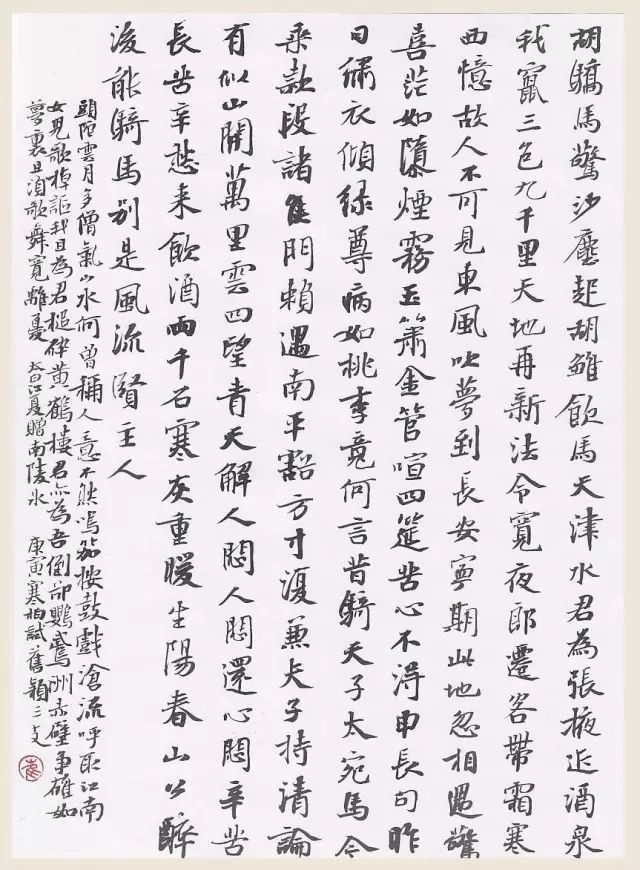 胡驕馬驚沙塵起胡雛飲馬天津水君為張掖近酒泉
我竄三色九千里天地再新法令寬夜郎遷客帶霜寒
西憶故人不可見東風吹夢到長安寧期此地忽相遇驚
喜茫如墮煙霧玉簫金管喧四筵苦心不得申長句昨
日繡衣傾綠尊病如桃李竟何言昔騎天子大宛馬今
乘款段諸侯門賴遇南平豁方寸復兼夫子持清論
有似山開萬里雲四望青天解人悶人悶還心悶辛苦
長苦辛愁來飲酒兩千石寒灰重暖生陽春山公醉
後能騎馬別是風流賢主人
頭陀雲月多僧氣山水何曾稱人意不然鳴笳按鼓戲滄流呼取江南
女兒歌棹謳我且為君槌碎黃鶴樓君亦為吾倒卻鸚鵡洲赤壁爭雄如
夢裏且須歌舞寬離憂 太白江夏贈南陵冰 庚寅寒柏試舊穎三支